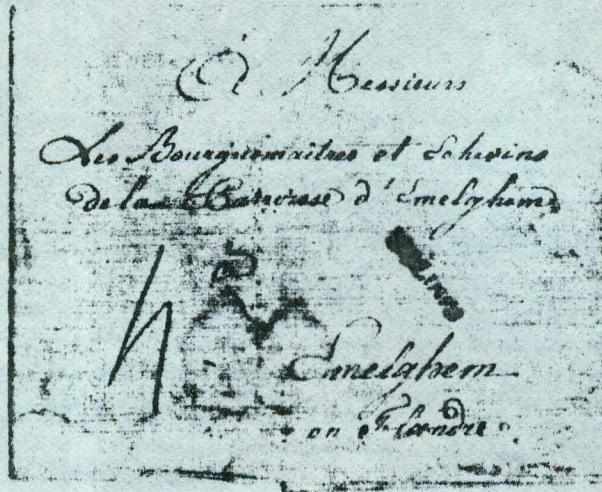 A Messieurs
Les Bourguemaitres et Echevins
de la Paroisse d'Emelghem
4
Emelghem
en Flandre